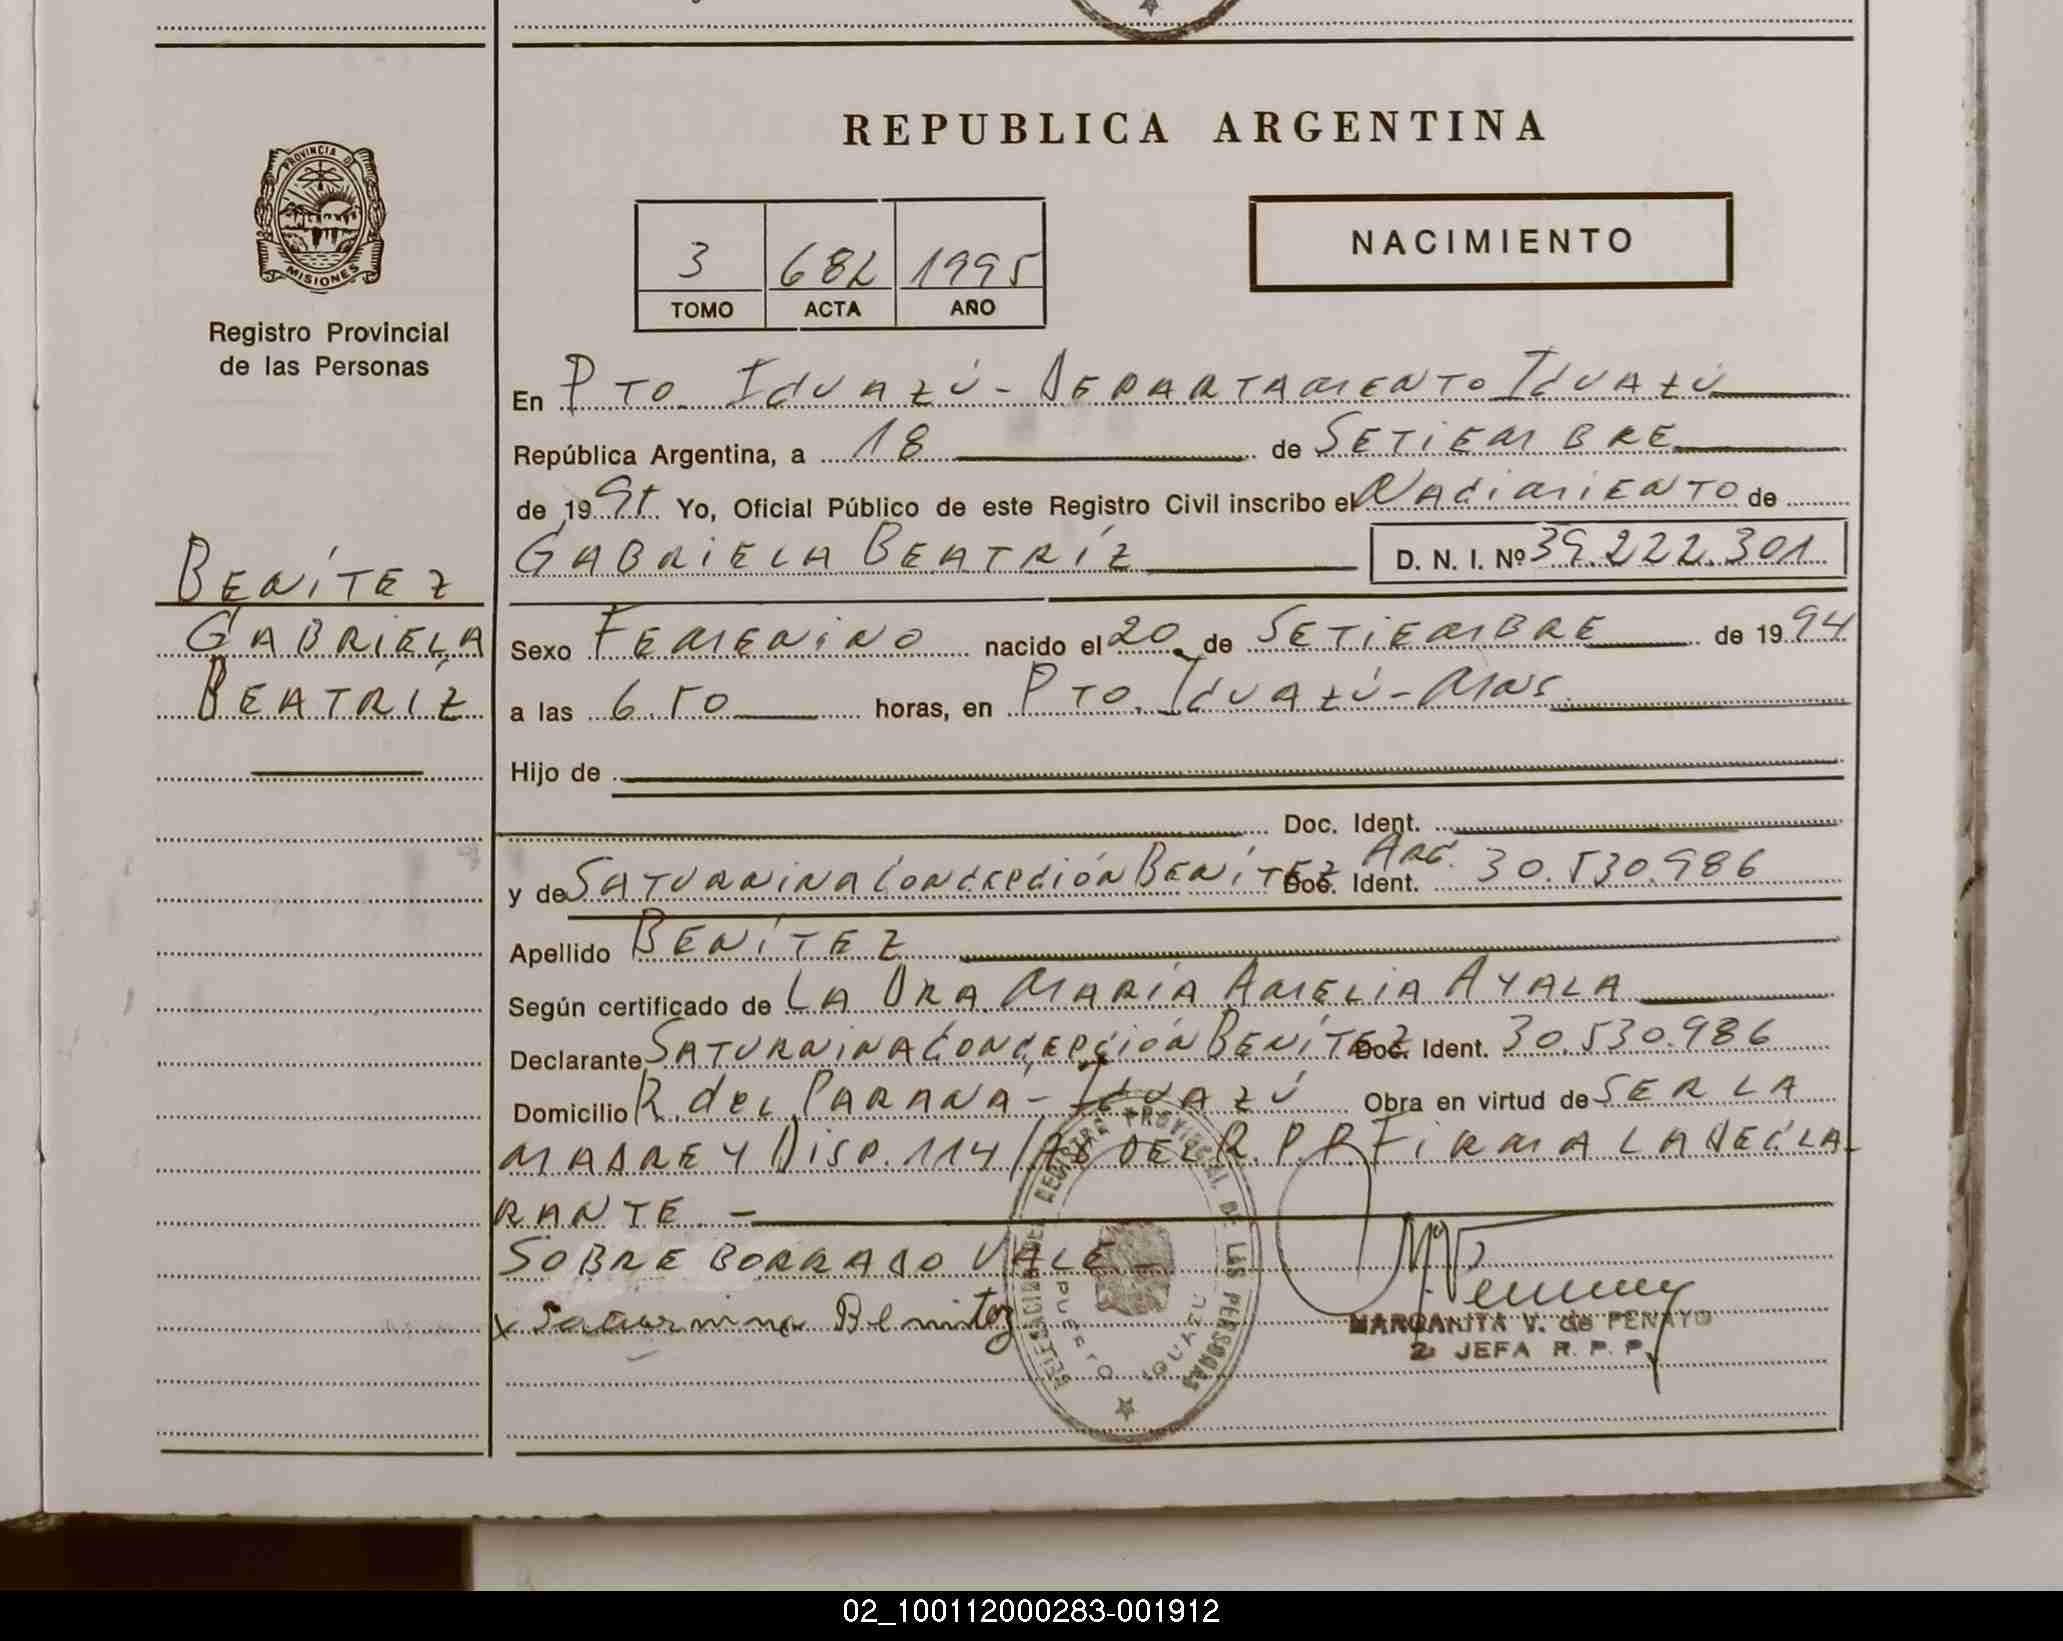 REPUBLICA ARGENTINA
PROVINCIA D
MISIONES
Registro Provincial
de las Personas
3 682 1995
TOMO ACTA AÑO
NACIMIENTO
En Pto. Iguazú - Departamento Iguazú
República Argentina, a 18 de Setiembre
de 1995 Yo, Oficial Público de este Registro Civil inscribo el Nacimiento de
Gabriela Beatríz D. N. I. Nº 39.222.301
Benítez
Gabriela
Beatríz
Sexo Femenino nacido el 20 de Setiembre de 1994
a las 6.50 horas, en Pto. Iguazú - Mnes.
Hijo de
Doc. Ident.
y de Saturnina Concepción Benítez Doc. Ident. Arg. 30.530.986
Apellido Benítez
Según certificado de La Dra María Amelia Ayala
Declarante Saturnina Concepción Benítez Doc. Ident. 30.530.986
Domicilio R. del Paraná - Iguazú Obra en virtud de ser la
madre y Disp. 114/ del R.P.P. Firma la decla-
rante -
Sobre borrado vale -
x Saturnina Benitez
DELEGACION DEL REGISTRO PROVINCIAL DE LAS PERSONAS
PUERTO IGUAZU
MARGARITA V. de PENAYO
2 JEFA R. P. P.
02_100112000283-001912